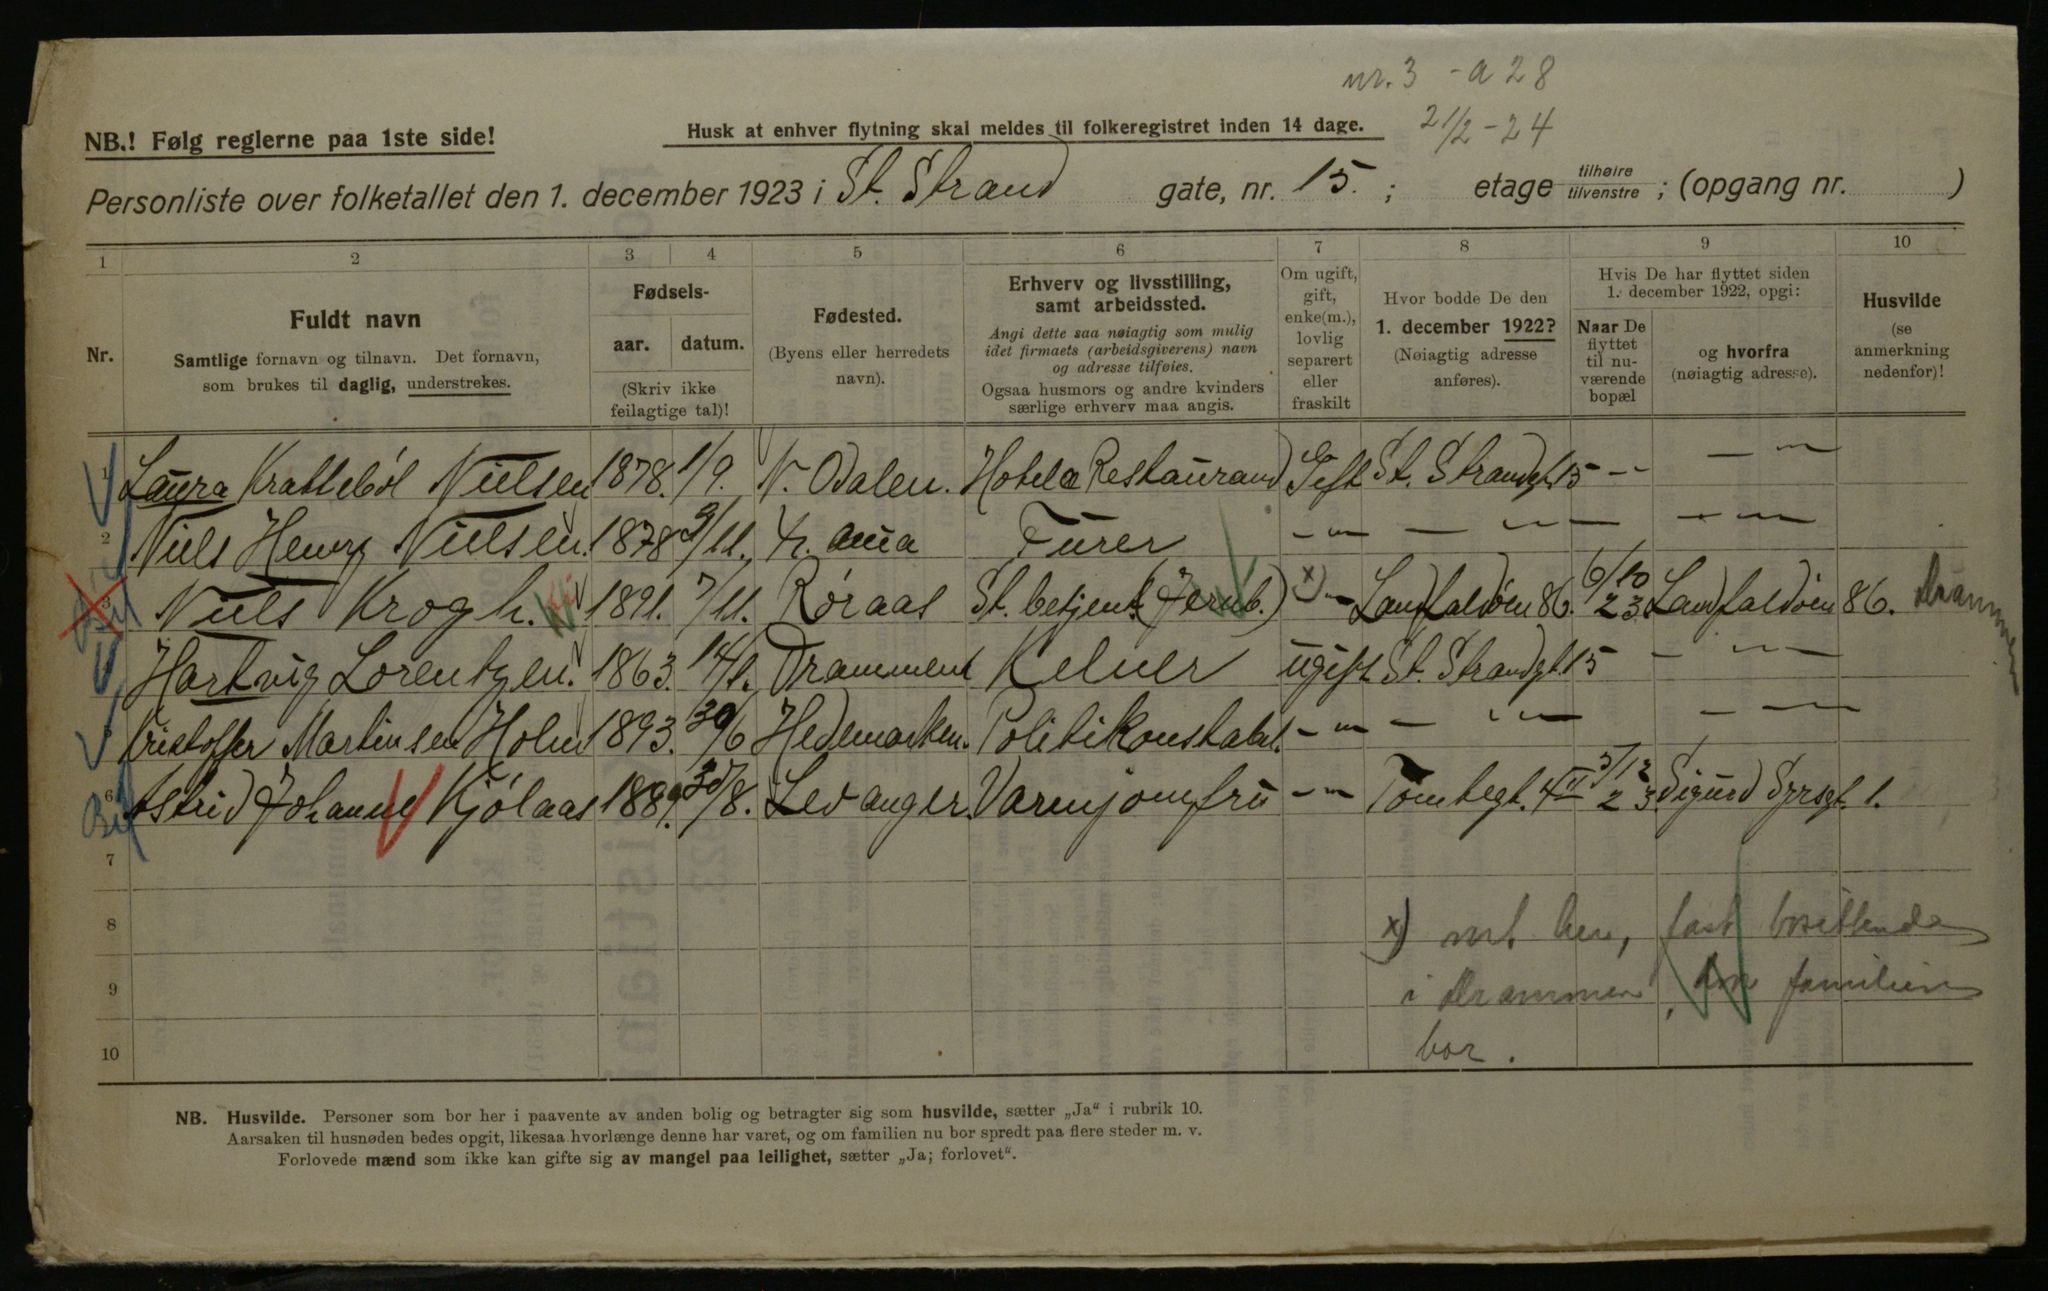 nr. 3 - a 28
21/2 - 24
NB.! Følg reglerne paa 1ste side!
Husk at enhver flytning skal meldes til folkeregistret inden 14 dage.
Personliste over folketallet den 1. december 1923 i St. Strand gate, nr. 15. ; etage tilhøire tilvenstre ; (opgang nr. )
1 2 3 4 5 6 7 8 9 10
Nr.
Fuldt navn
Samtlige fornavn og tilnavn. Det fornavn,
som brukes til daglig, understrekes.
Fødsels-
aar. datum.
(Skriv ikke
feilagtige tal)!
Fødested.
(Byens eller herredets
navn).
Erhverv og livsstilling,
samt arbeidssted.
Angi dette saa nøiagtig som mulig
idet firmaets (arbeidsgiverens) navn
og adresse tilføies.
Ogsaa husmors og andre kvinders
særlige erhverv maa angis.
Om ugift,
gift,
enke(m.),
lovlig
separert
eller
fraskilt
Hvor bodde De den
1. december 1922?
(Nøiagtig adresse
anføres).
Hvis De har flyttet siden
1. december 1922, opgi:
Naar De
flyttet
til nu-
værende
bopæl
og hvorfra
(nøiagtig adresse).
Husvilde
(se
anmerkning
nedenfor)!
1 Laura Krattebøl Nielsen 1878. 1/9. N. Odalen. Hotel & Restaurand Gift St. Strandgt. 15 - " - - " -
2 Niels Henry Nielsen. 1878 9/11. - " - - " - - " -
3 Niels Krogh. 1891. 7/11. Røraas St. betjent (Jernb.) x) - " - Landfaldøen 86. 6/10 23. Landfaldøen 86. Drammen
Hartvig Lorentzen. 1863. 14/1. Drammen Kelner ugift St. Strandgt. 15 - " -
5 Kristoffer Martinsen Holm 1893. 30/6 Hedemarken. Politikonstabel. - " - - " - - " -
6 Astrid Johanne Kjölaas 1889. 30/8. Levanger. Varmjomfru - " - Tomtegt. 4 II 5/12 23. Sigurd Syrsgt. 1.
7
8
9
10
x) mt her, fast bosittende
i Drammen, hvor familien
bor.
NB. Husvilde. Personer som bor her i paavente av anden bolig og betragter sig som husvilde, sætter „Ja“ i rubrik 10.
Aarsaken til husnøden bedes opgit, likesaa hvorlænge denne har varet, og om familien nu bor spredt paa flere steder m. v.
Forlovede mænd som ikke kan gifte sig av mangel paa leilighet, sætter „Ja; forlovet“.